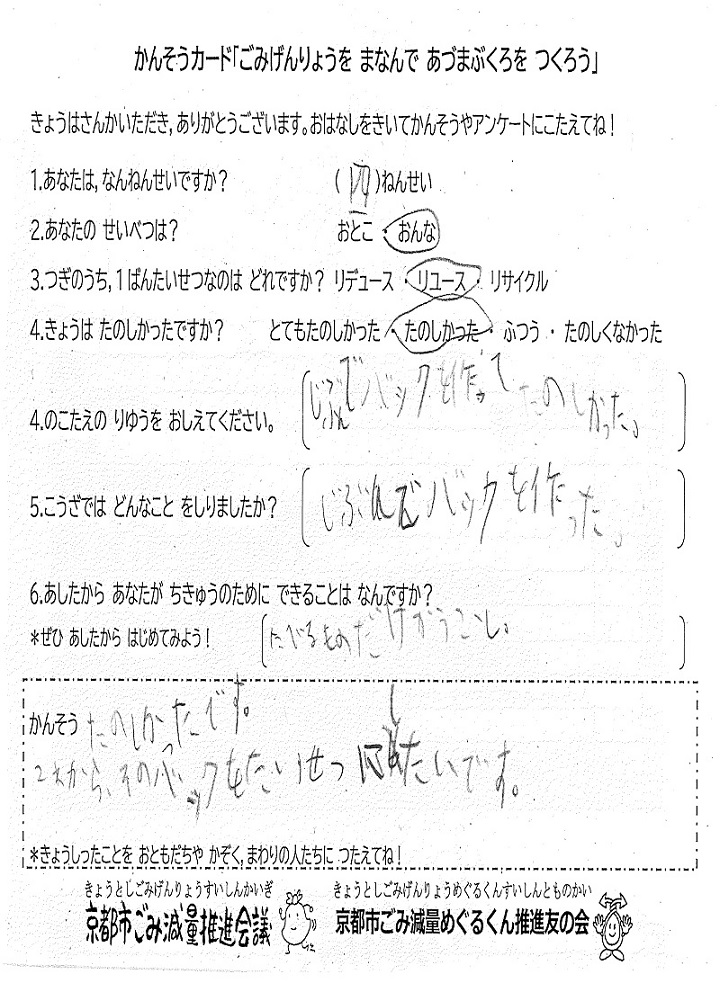 かんそうカード「ごみげんりょうを まなんで あづまぶくろを つくろう」
きょうはさんかいただき,ありがとうございます。おはなしをきいてかんそうやアンケートにこたえてね!
1.あなたは,なんねんせいですか? (四)ねんせい
2.あなたの せいべつは? おとこ ・ おんな
3.つぎのうち,1ばんたいせつなのは どれですか? リデュース ・ リユース ・ リサイクル
4.きょうは たのしかったですか? とてもたのしかった ・ たのしかった ・ ふつう ・ たのしくなかった
4.のこたえの りゆうを おしえてください。 じぶんでバックを作って たのしかった。
5.こうざでは どんなこと をしりましたか? じぶんでバックを作った。
6.あしたから あなたが ちきゅうのために できることは なんですか?
*ぜひ あしたから はじめてみよう! たべるものだけがうこし。
かんそう たのしかったです。
これから、そのバックをたいせつにしたいです。
*きょうしったことを おともだちや かぞく,まわりの人たちに つたえてね!
きょうとしごみげんりょうすいしんかいぎ きょうとしごみげんりょうめぐるくんすいしんとものかい
京都市ごみ減量推進会議 京都市ごみ減量めぐるくん推進友の会